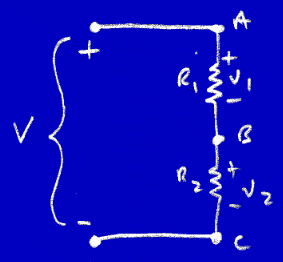 A
+
+
R1 V1
-
V
B
R2 + V2
-
-
C